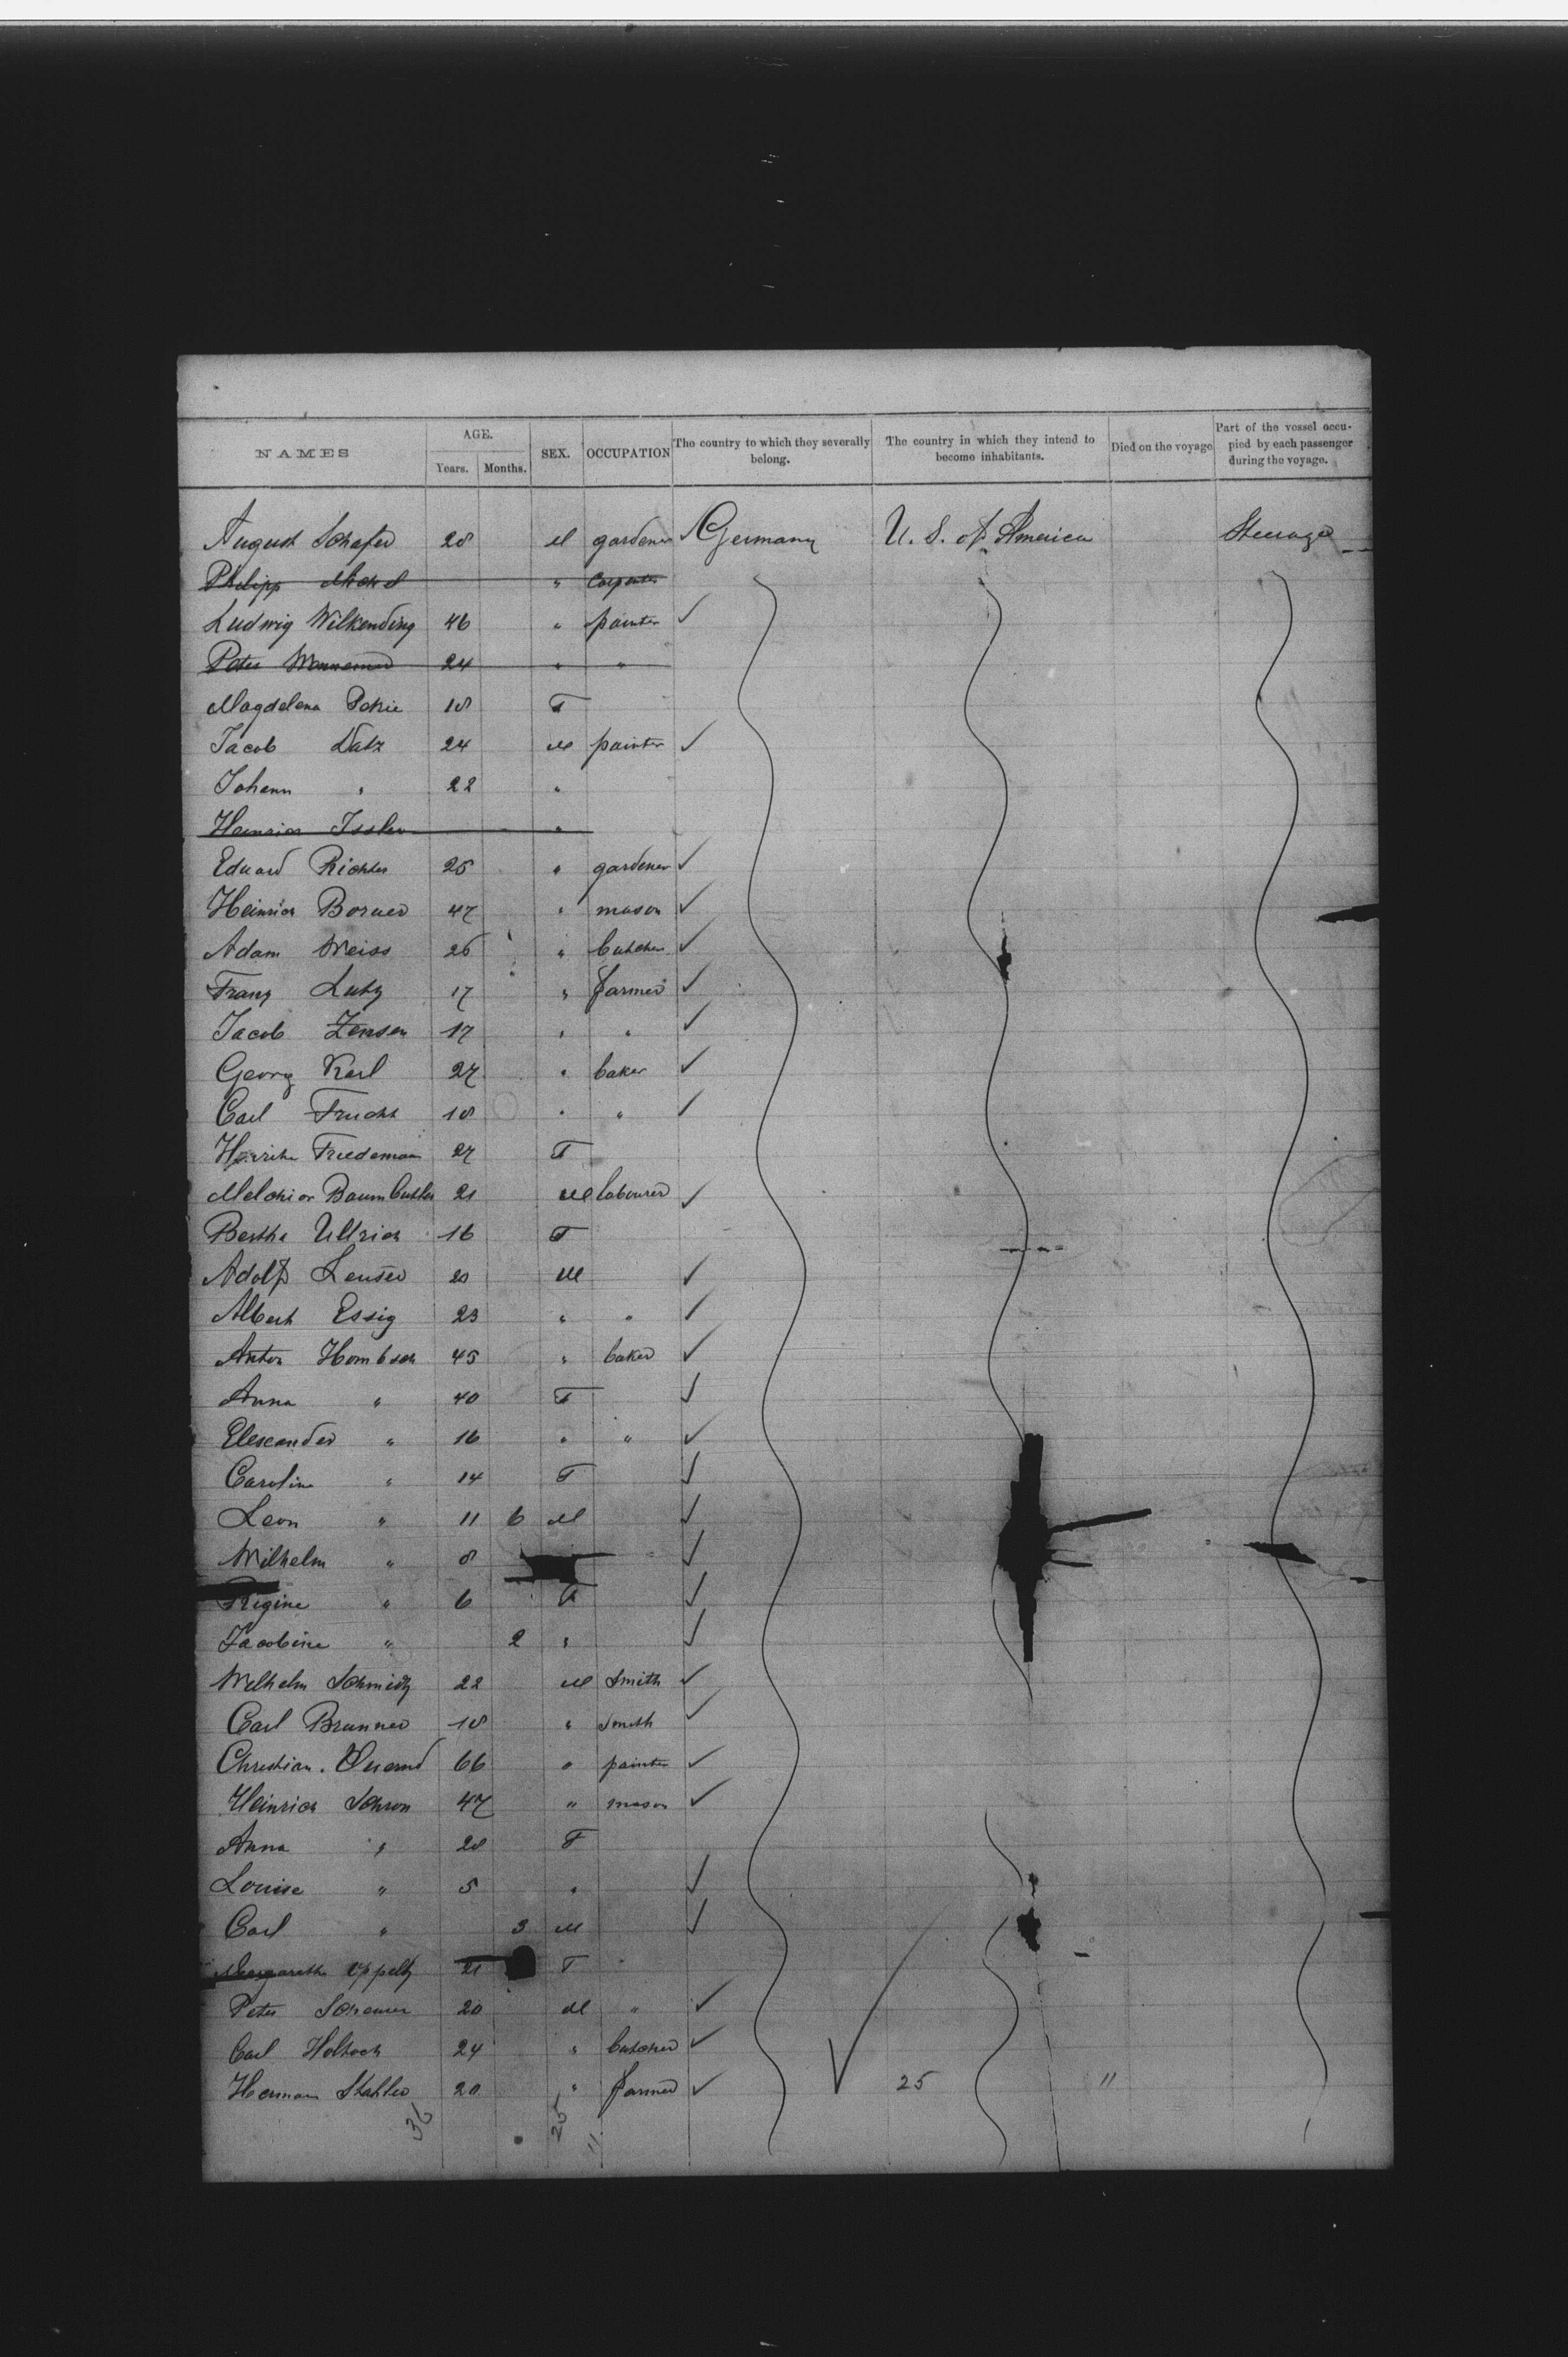 NAMES AGE. Years. Months. SEX. OCCUPATION The country to which they severally belong. The country in which they intend to become inhabitants. Died on the voyage Part of the vessel occupied by each passenger during the voyage.
August Schafer 28 M gardener Germany U. S. of America Steerage
Philipp " carpenter
Ludwig Wilkending 46 " painter
Peter 24 " "
Magdelena 18 F
Jacob Datz 24 M painter
Johann " 22 "
Heinrich Issler "
Eduard Richter 25 " gardener
Heinrich Borner 47 " mason
Adam Weiss 26 " butcher
Franz Lutz 17 " farmer
Jacob Jensen 17 " "
Georg Karl 27 " baker
Carl Frucht 18 " "
Friedemann 27 F
Melchior 21 M labourer
Bertha Ullrich 16 F
Adolf Leuser 20 M
Albert Essig 23 " "
Anton Hombsch 45 " baker
Anna " 40 F
Elexander " 16 " "
Caroline " 14 F
Leon " 11 6 M
Wilhelm " 8
Regine " 6 F
Jacobine " 2 "
Wilhelm Schmidt 22 M Smith
Carl Brunner 18 " Smith
Christian 66 " painter
Heinrich Schron 47 " mason
Anna " 28 F
Louise " 5 "
Carl " 3 M
Margareth 21 F
Peter 20 M "
Carl 24 " butcher
Hermann Stahler 20 " farmer 25 "
36 25 11